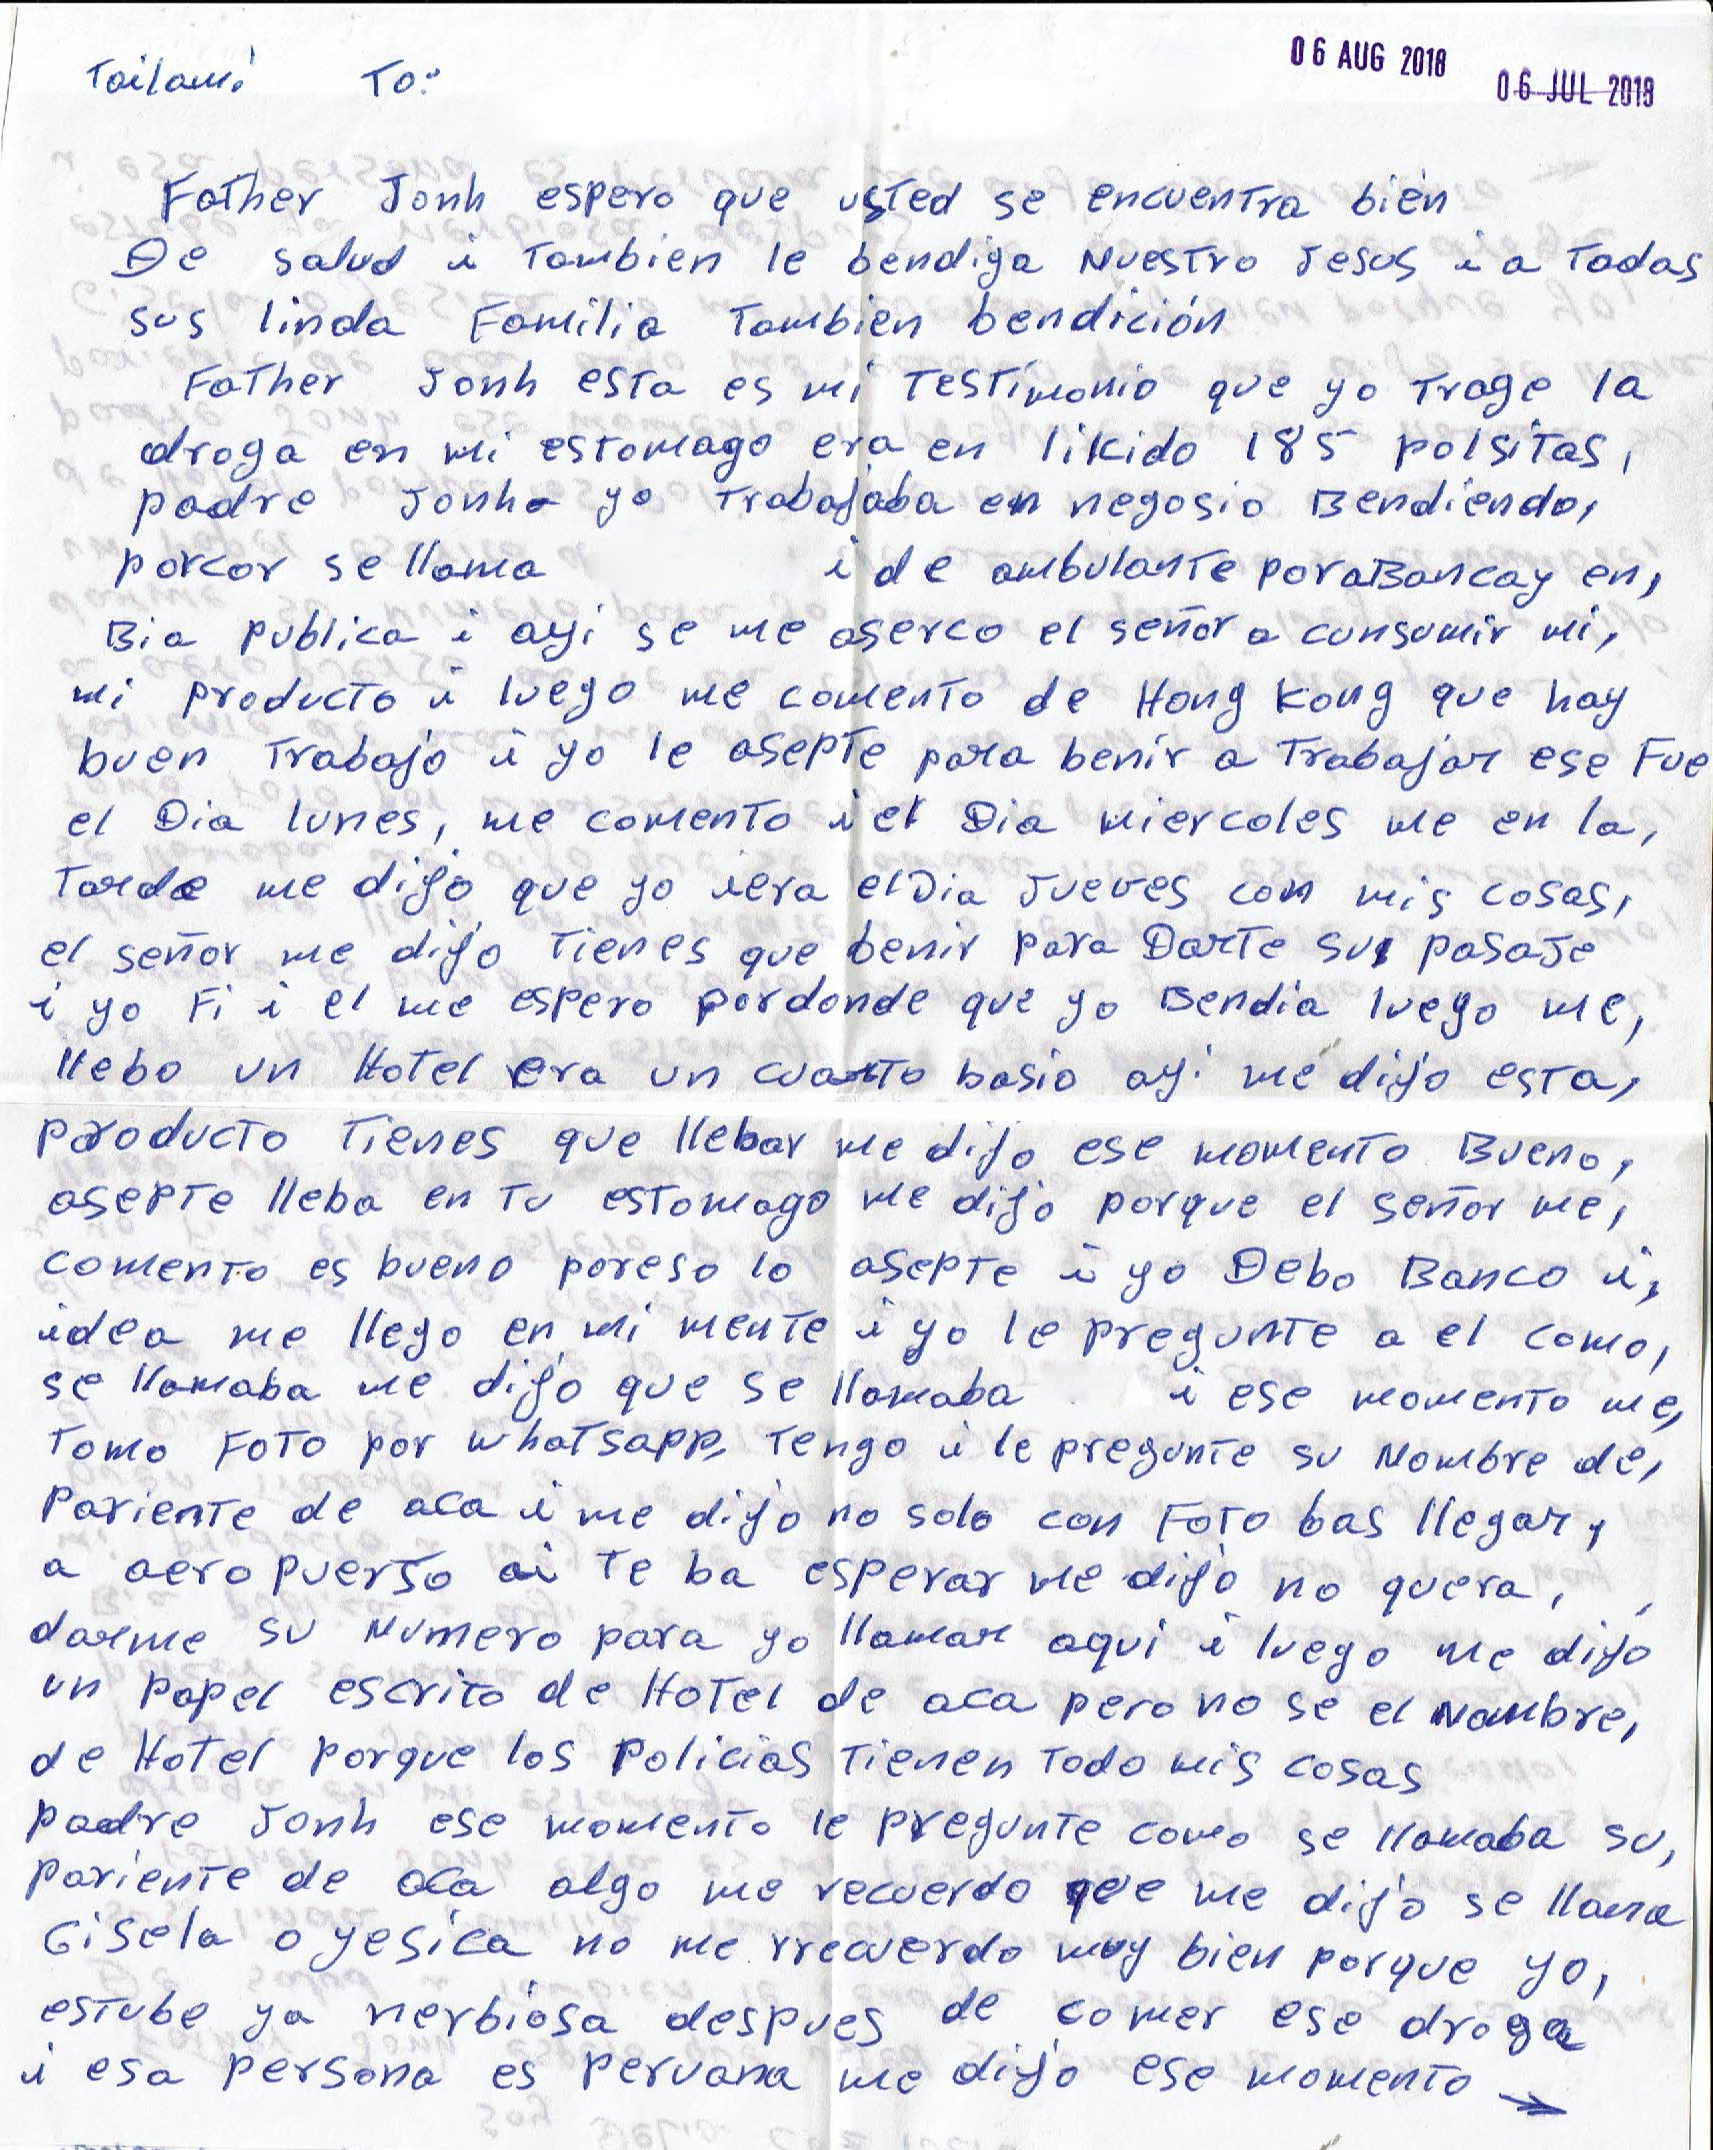 Tailami To:
06 AUG 2018
06 JUL 2019
Father Jonh espero que usted se encuentra bien
De salud i Tambien le bendiga Nuestro Jesus i a Todas
sus linda Familia Tambien bendición
Father Jonh esta es mi Testimonio que yo Trage la
droga en mi estomago era en likido 185 polsitas,
padre Jonh yo Trabajaba en negosio Bendiendo,
porcor se llama i de ambulante poraBancay en,
Bia publica i ayi se me aserco el señor a cunsumir mi,
mi producto i luego me comento de Hong Kong que hay
buen Trabajo i yo le asepte para benir a Trabajar ese Fue
el Dia lunes, me comento i el Dia miercoles me en la,
Tarde me dijo que yo iera el Dia Jueves con mis cosas,
el señor me dijo Tienes que benir para Darte su pasaje
i yo Fi i el me espero pordonde que yo Bendia luego me,
llebo un Hotel era un cuarto basio ayi me dijo esta,
producto Tienes que llebar me dijo ese momento Bueno,
asepte lleba en Tu estomago me dijo porque el señor me,
comento es bueno poreso lo asepte i yo Debo Banco i,
idea me llego en mi mente i yo le pregunte a el como,
se llamaba me dijo que se llamaba i ese momento me,
Tomo FoTo por whatsapp Tengo i le pregunte su Nombre de,
Pariente de aca i me dijo no solo con FoTo bas llegar,
a aeropuerto ai Te ba esperar me dijo no quera,
darme su Numero para yo llamar aqui i luego me dijo
un papel escrito de Hotel de aca pero no se el Nombre,
de Hotel porque los Policias Tienen Todo mis cosas
padre Jonh ese momento le pregunte como se llamaba su,
pariente de aca algo me recuerdo que me dijo se llama
Gisela o yesica no me rrecuerdo muy bien porque yo,
estube ya nerbiosa despues de comer ese droga
i esa persona es peruana me dijo ese momento →